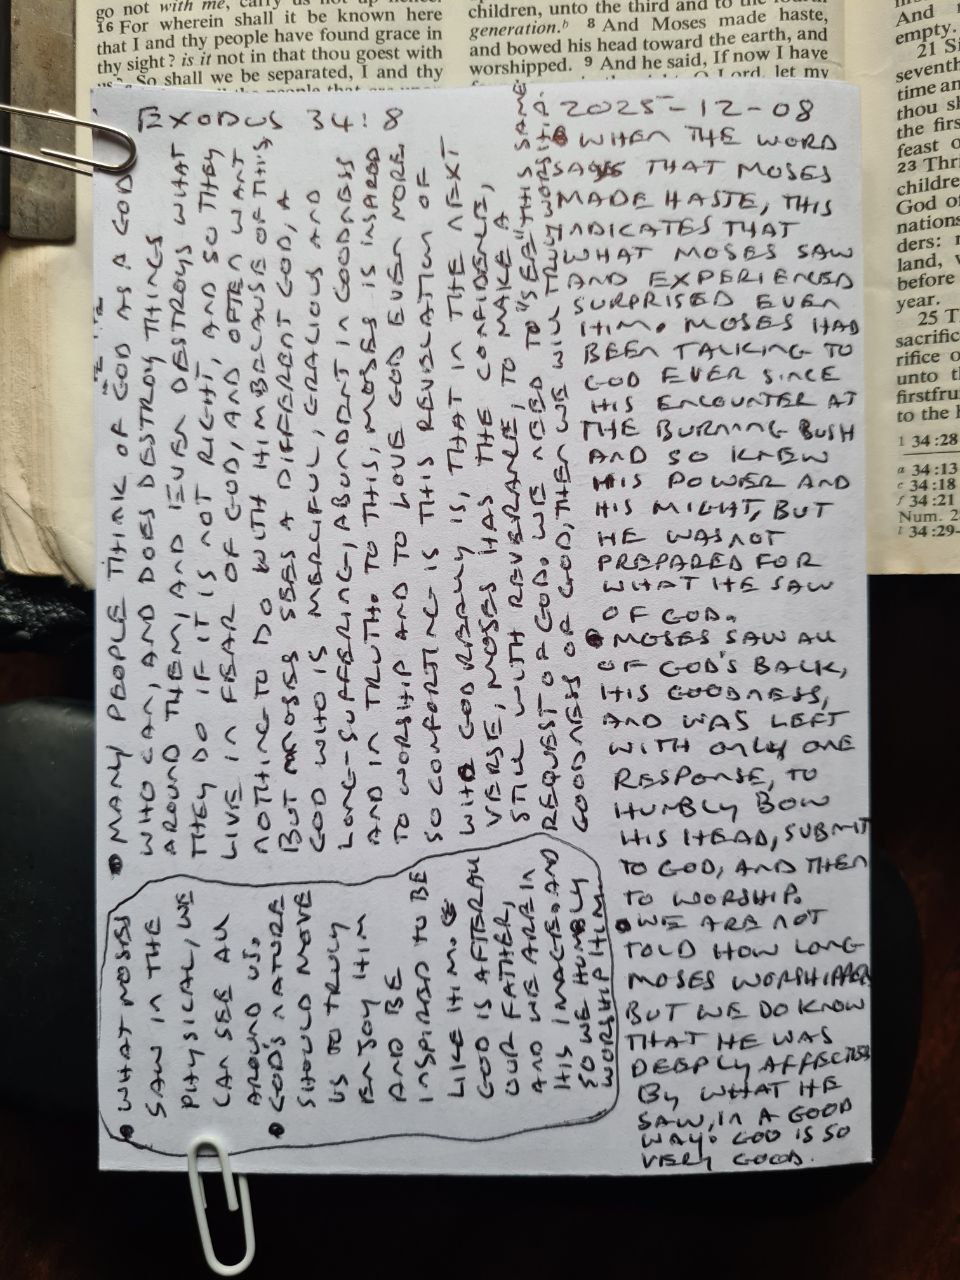 go not with me, carry us not up hence.
16 For wherein shall it be known here
that I and thy people have found grace in
thy sight? is it not in that thou goest with
us? So shall we be separated, I and thy
children, unto the third and to the fourth
generation.b 8 And Moses made haste,
and bowed his head toward the earth, and
worshipped. 9 And he said, If now I have
O Lord, let my
And
empty.
21
seventh
time an
thou sh
the firs
feast o
23 Thri
children
God of
nations
ders:
land,
before
year.
25
sacrific
rifice o
unto th
firstfru
to the h
1 34:28
a 34:13
c 34:18
f 34:21
Num. 2
l 34:29-
EXODUS 34:8
2025-12-08
• WHEN THE WORD
SAYS THAT MOSES
MADE HASTE, THIS
INDICATES THAT
WHAT MOSES SAW
AND EXPERIENCED
SURPRISED EVEN
HIM. MOSES HAD
BEEN TALKING TO
GOD EVER SINCE
HIS ENCOUNTER AT
THE BURNING BUSH
AND SO KNEW
HIS POWER AND
HIS MIGHT, BUT
HE WAS NOT
PREPARED FOR
WHAT HE SAW
OF GOD.
• MOSES SAW ALL
OF GOD'S BACK,
HIS GOODNESS,
AND WAS LEFT
WITH ONLY ONE
RESPONSE, TO
HUMBLY BOW
HIS HEAD, SUBMIT
TO GOD, AND THEN
TO WORSHIP.
• WE ARE NOT
TOLD HOW LONG
MOSES WORSHIPPED
BUT WE DO KNOW
THAT HE WAS
DEEPLY AFFECTED
BY WHAT HE
SAW, IN A GOOD
WAY. GOD IS SO
VERY GOOD.
• MANY PEOPLE THINK OF GOD AS A GOD
WHO CAN, AND DOES DESTROY THINGS
AROUND THEM, AND EVEN DESTROYS WHAT
THEY DO IF IT IS NOT RIGHT, AND SO THEY
LIVE IN FEAR OF GOD, AND OFTEN WANT
NOTHING TO DO WITH HIM BECAUSE OF THIS,
BUT MOSES SEES A DIFFERENT GOD, A
GOD WHO IS MERCIFUL, GRACIOUS AND
LONG-SUFFERING, ABUNDENT IN GOODNESS
AND IN TRUTH. TO THIS, MOSES IS INSPIRED
TO WORSHIP AND TO LOVE GOD EVEN MORE.
SO COMFORTING IS THIS REVELATION OF
WHO GOD REALLY IS, THAT IN THE NEXT
VERSE, MOSES HAS THE CONFIDENCE,
STILL WITH REVERANCE, TO MAKE A
REQUEST OF GOD. WE NEED TO "SEE" THIS SAME
GOODNESS OF GOD, THEN WE WILL TRULY WORSHIP.
• WHAT MOSES
SAW IN THE
PHYSICAL, WE
CAN SEE ALL
AROUND US.
• GODS NATURE
SHOULD MOVE
US TO TRULY
ENJOY HIM
AND BE
INSPIRED TO BE
LIKE HIM.
GOD IS AFTER ALL
OUR FATHER,
AND WE ARE IN
HIS IMAGE. AND
SO WE HUMBLY
WORSHIP HIM.